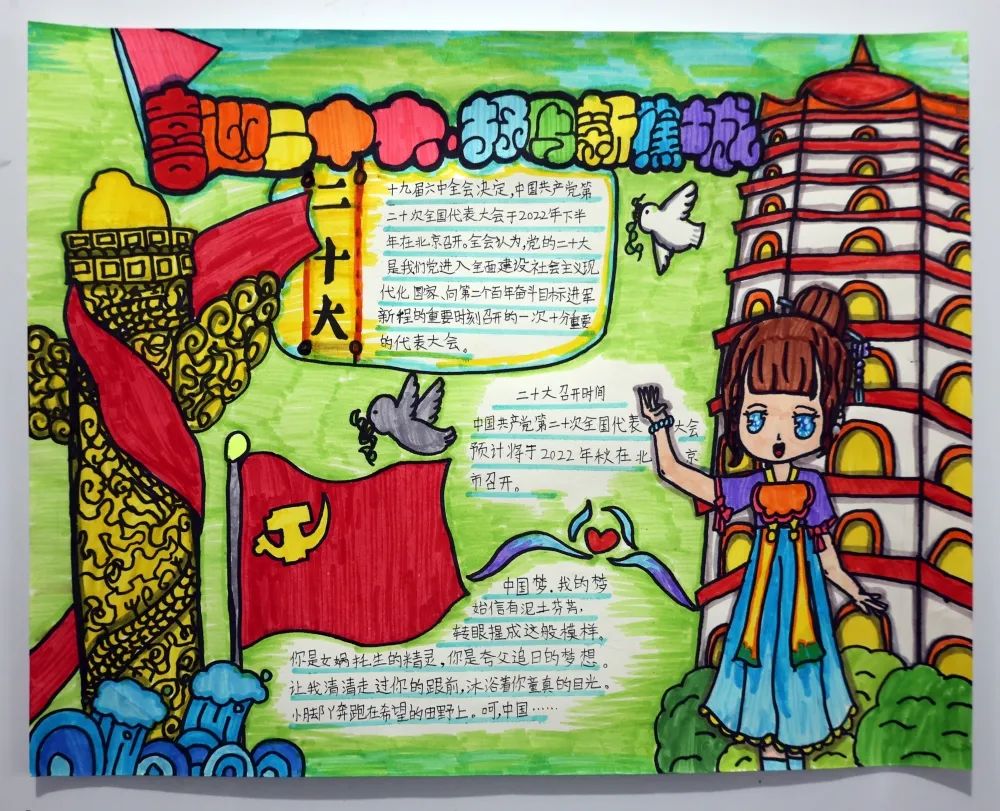 喜迎二十大·扬帆新蕉城
二十大
十九届六中全会决定,中国共产党第
二十次全国代表大会于2022年下半
年在北京召开。全会认为,党的二十大
是我们党进入全面建设社会主义现
代化国家、向第二个百年奋斗目标进军
新程的重要时刻召开的一次十分重要
的代表大会。
二十大召开时间
中国共产党第二十次全国代表大会
预计将于2022年秋在北京
市召开。
中国梦.我的梦
始信有泥土芬芳,
转眼捏成这般模样。
你是女娲托生的精灵,你是夸父追日的梦想。
让我清清走过你的跟前,沐浴着你童真的目光。
小脚丫奔跑在希望的田野上。呵,中国……